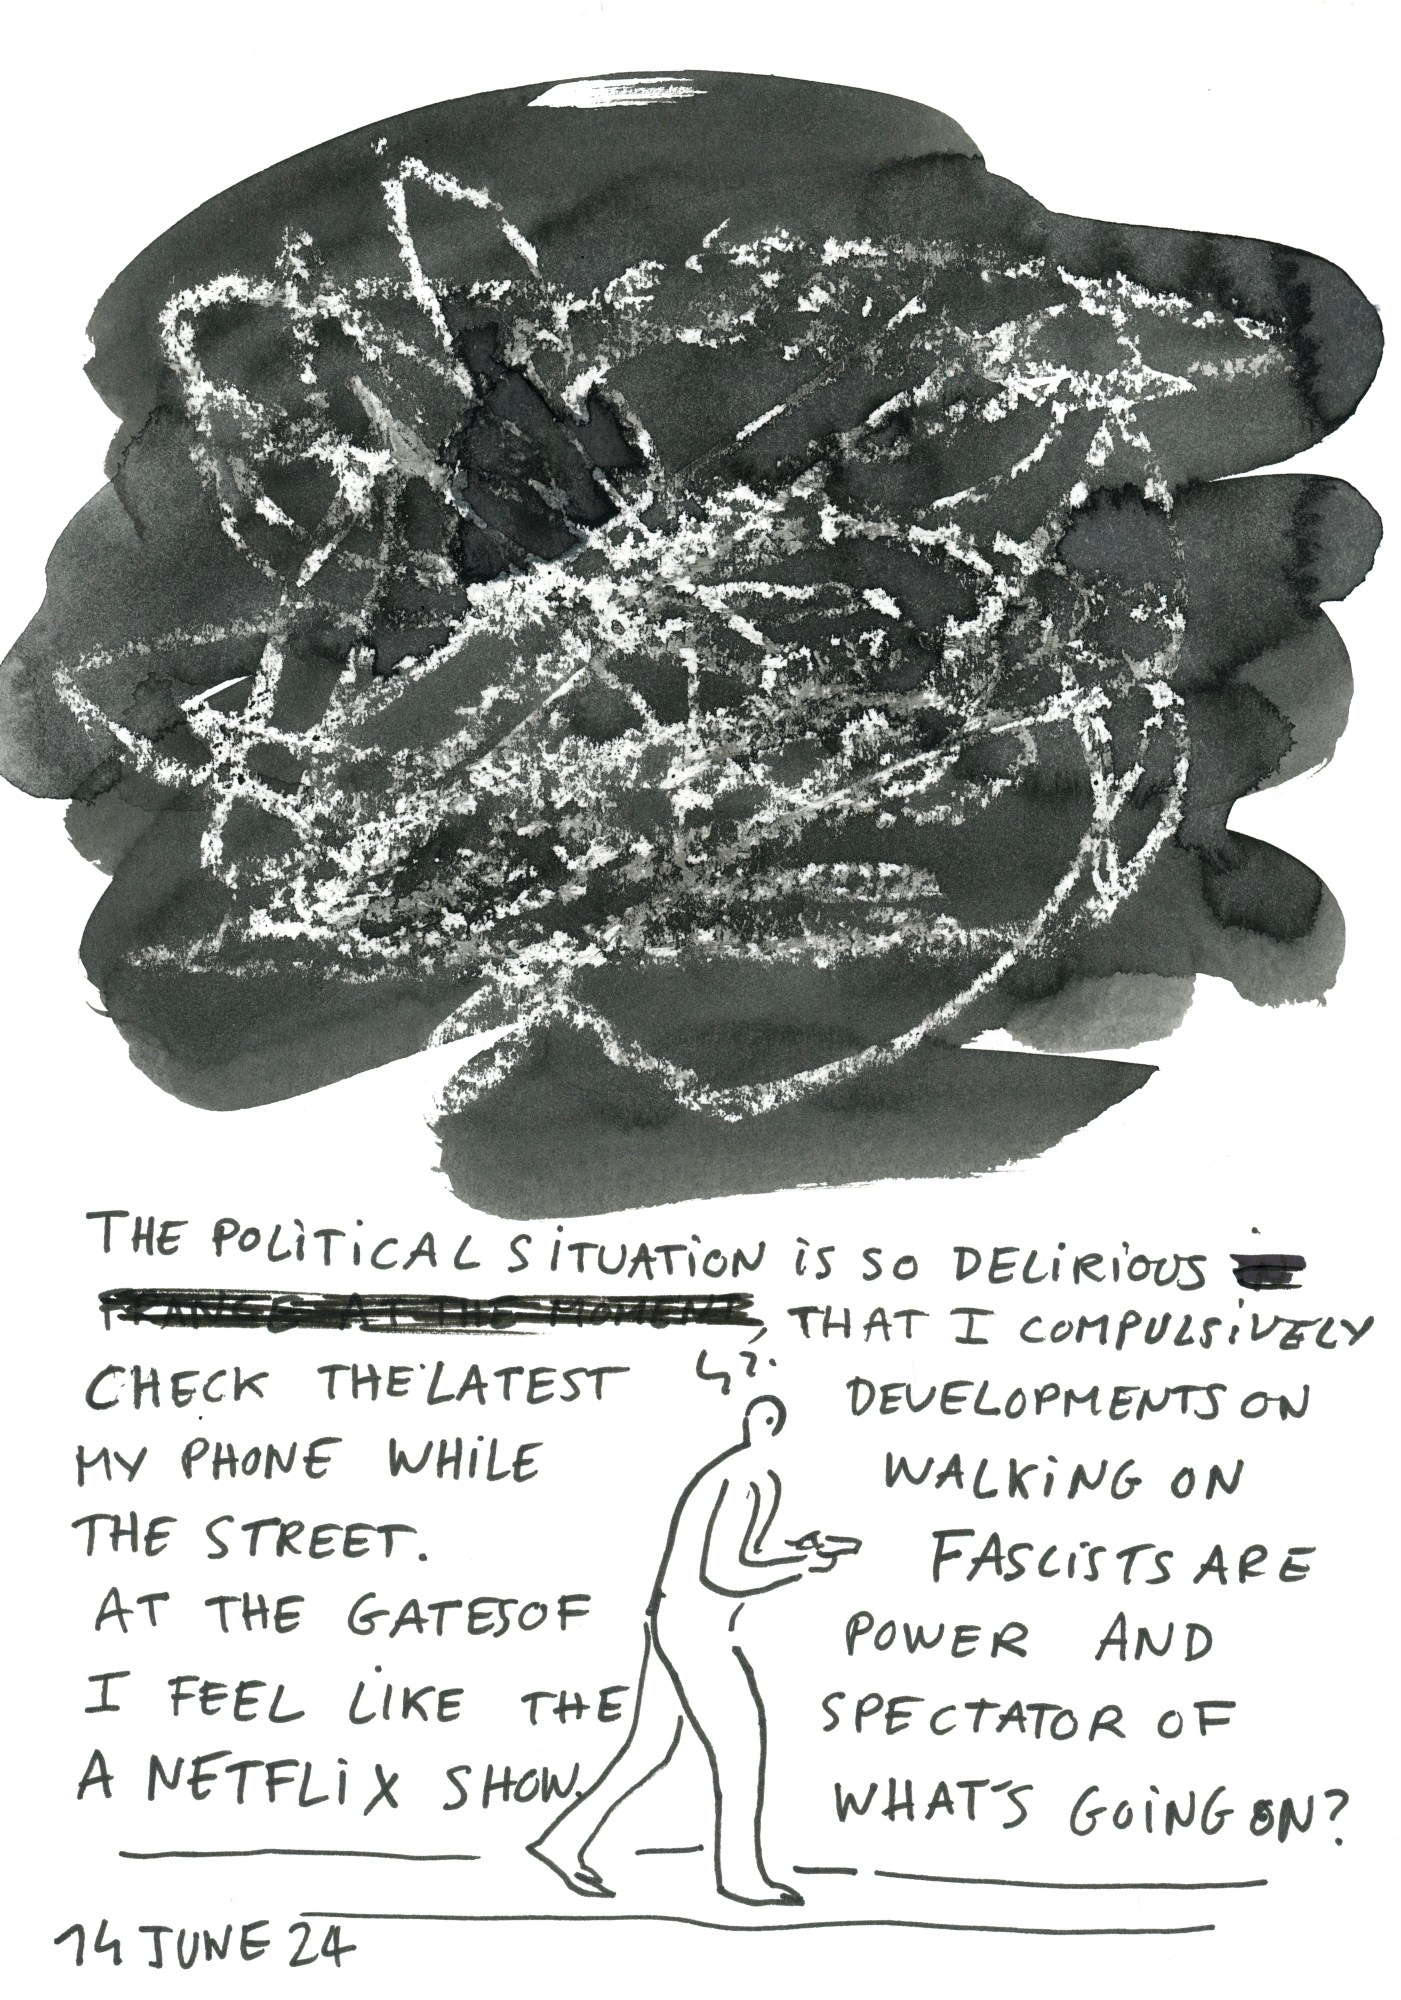 THE POLITICAL SITUATION IS SO DELIRIOUS IN
FRANCE AT THE MOMENT, THAT I COMPULSIVELY
CHECK THE LATEST DEVELOPMENTS ON
MY PHONE WHILE WALKING ON
THE STREET. FASCISTS ARE
AT THE GATES OF POWER AND
I FEEL LIKE THE SPECTATOR OF
A NETFLIX SHOW. WHAT'S GOING ON?
14 JUNE 24